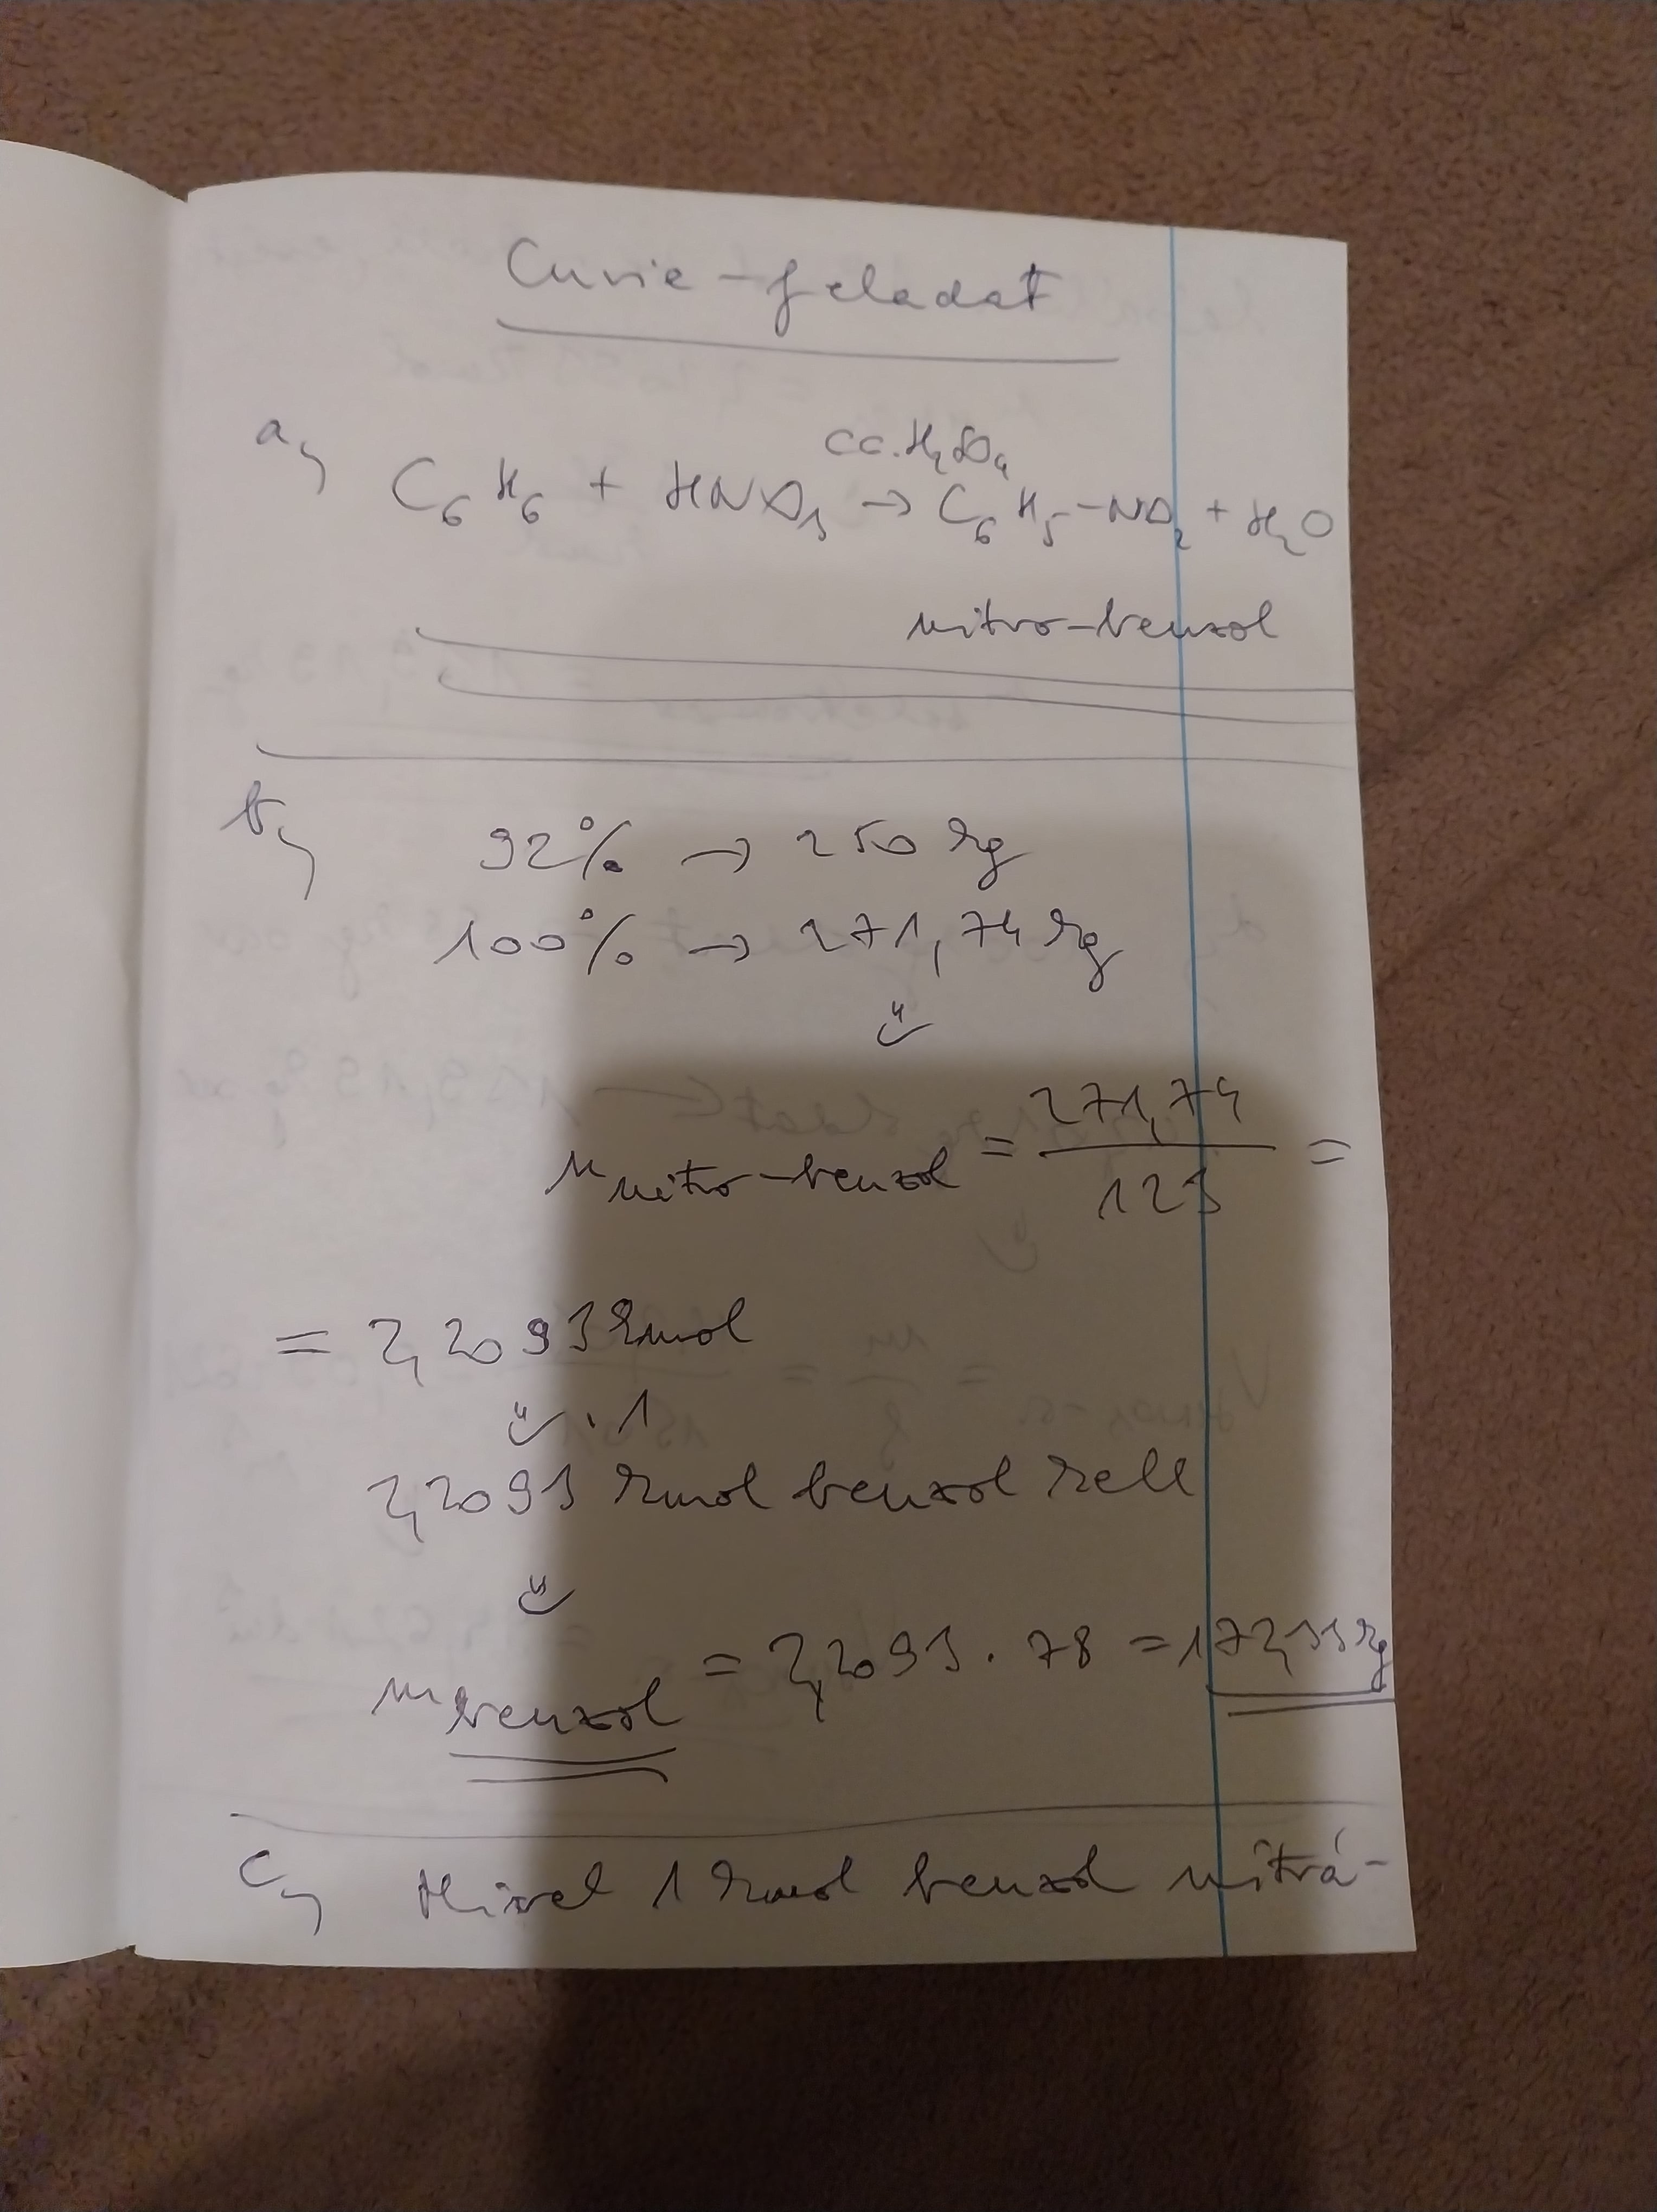 Curie-feladat
a,
cc. H₂SO₄
C₆H₆ + HNO₃ → C₆H₅-NO₂ + H₂O
nitro-benzol
b,
92% → 250 kg
100% → 271,74 kg
⇓
n nitro-benzol = 271,74 / 123 =
= 2,2093 kmol
⇓ · 1
2,2093 kmol benzol kell
⇓
m benzol = 2,2093 · 78 = 172,33 kg
c, Mivel 1 kmol benzol nitrá-